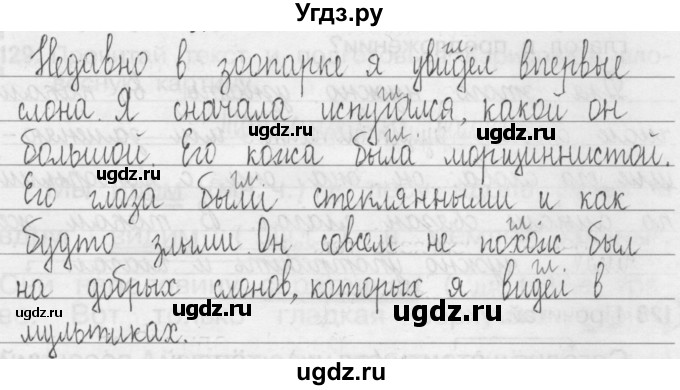 Угдз.ру
Недавно в зоопарке я увидел впервые
слона. Я сначала испугался, какой он
большой. Его кожа была морщиннистой.
Его глаза были стеклянными и как
будто злыми. Он совсем не похож был
на добрых слонов, которых я видел в
мультиках.
ugdz.ru
ugdz.ru
ugdz.ru
ugdz.ru
ugdz.ru
ugdz.ru
ugdz.ru
ugdz.ru
ugdz.ru
ugdz.ru
ugdz.ru
ugdz.ru